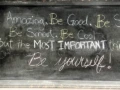 Amazing. Be Good. Be S
Be Smart. Be Cool
but the MOST IMPORTANT
Be yourself!